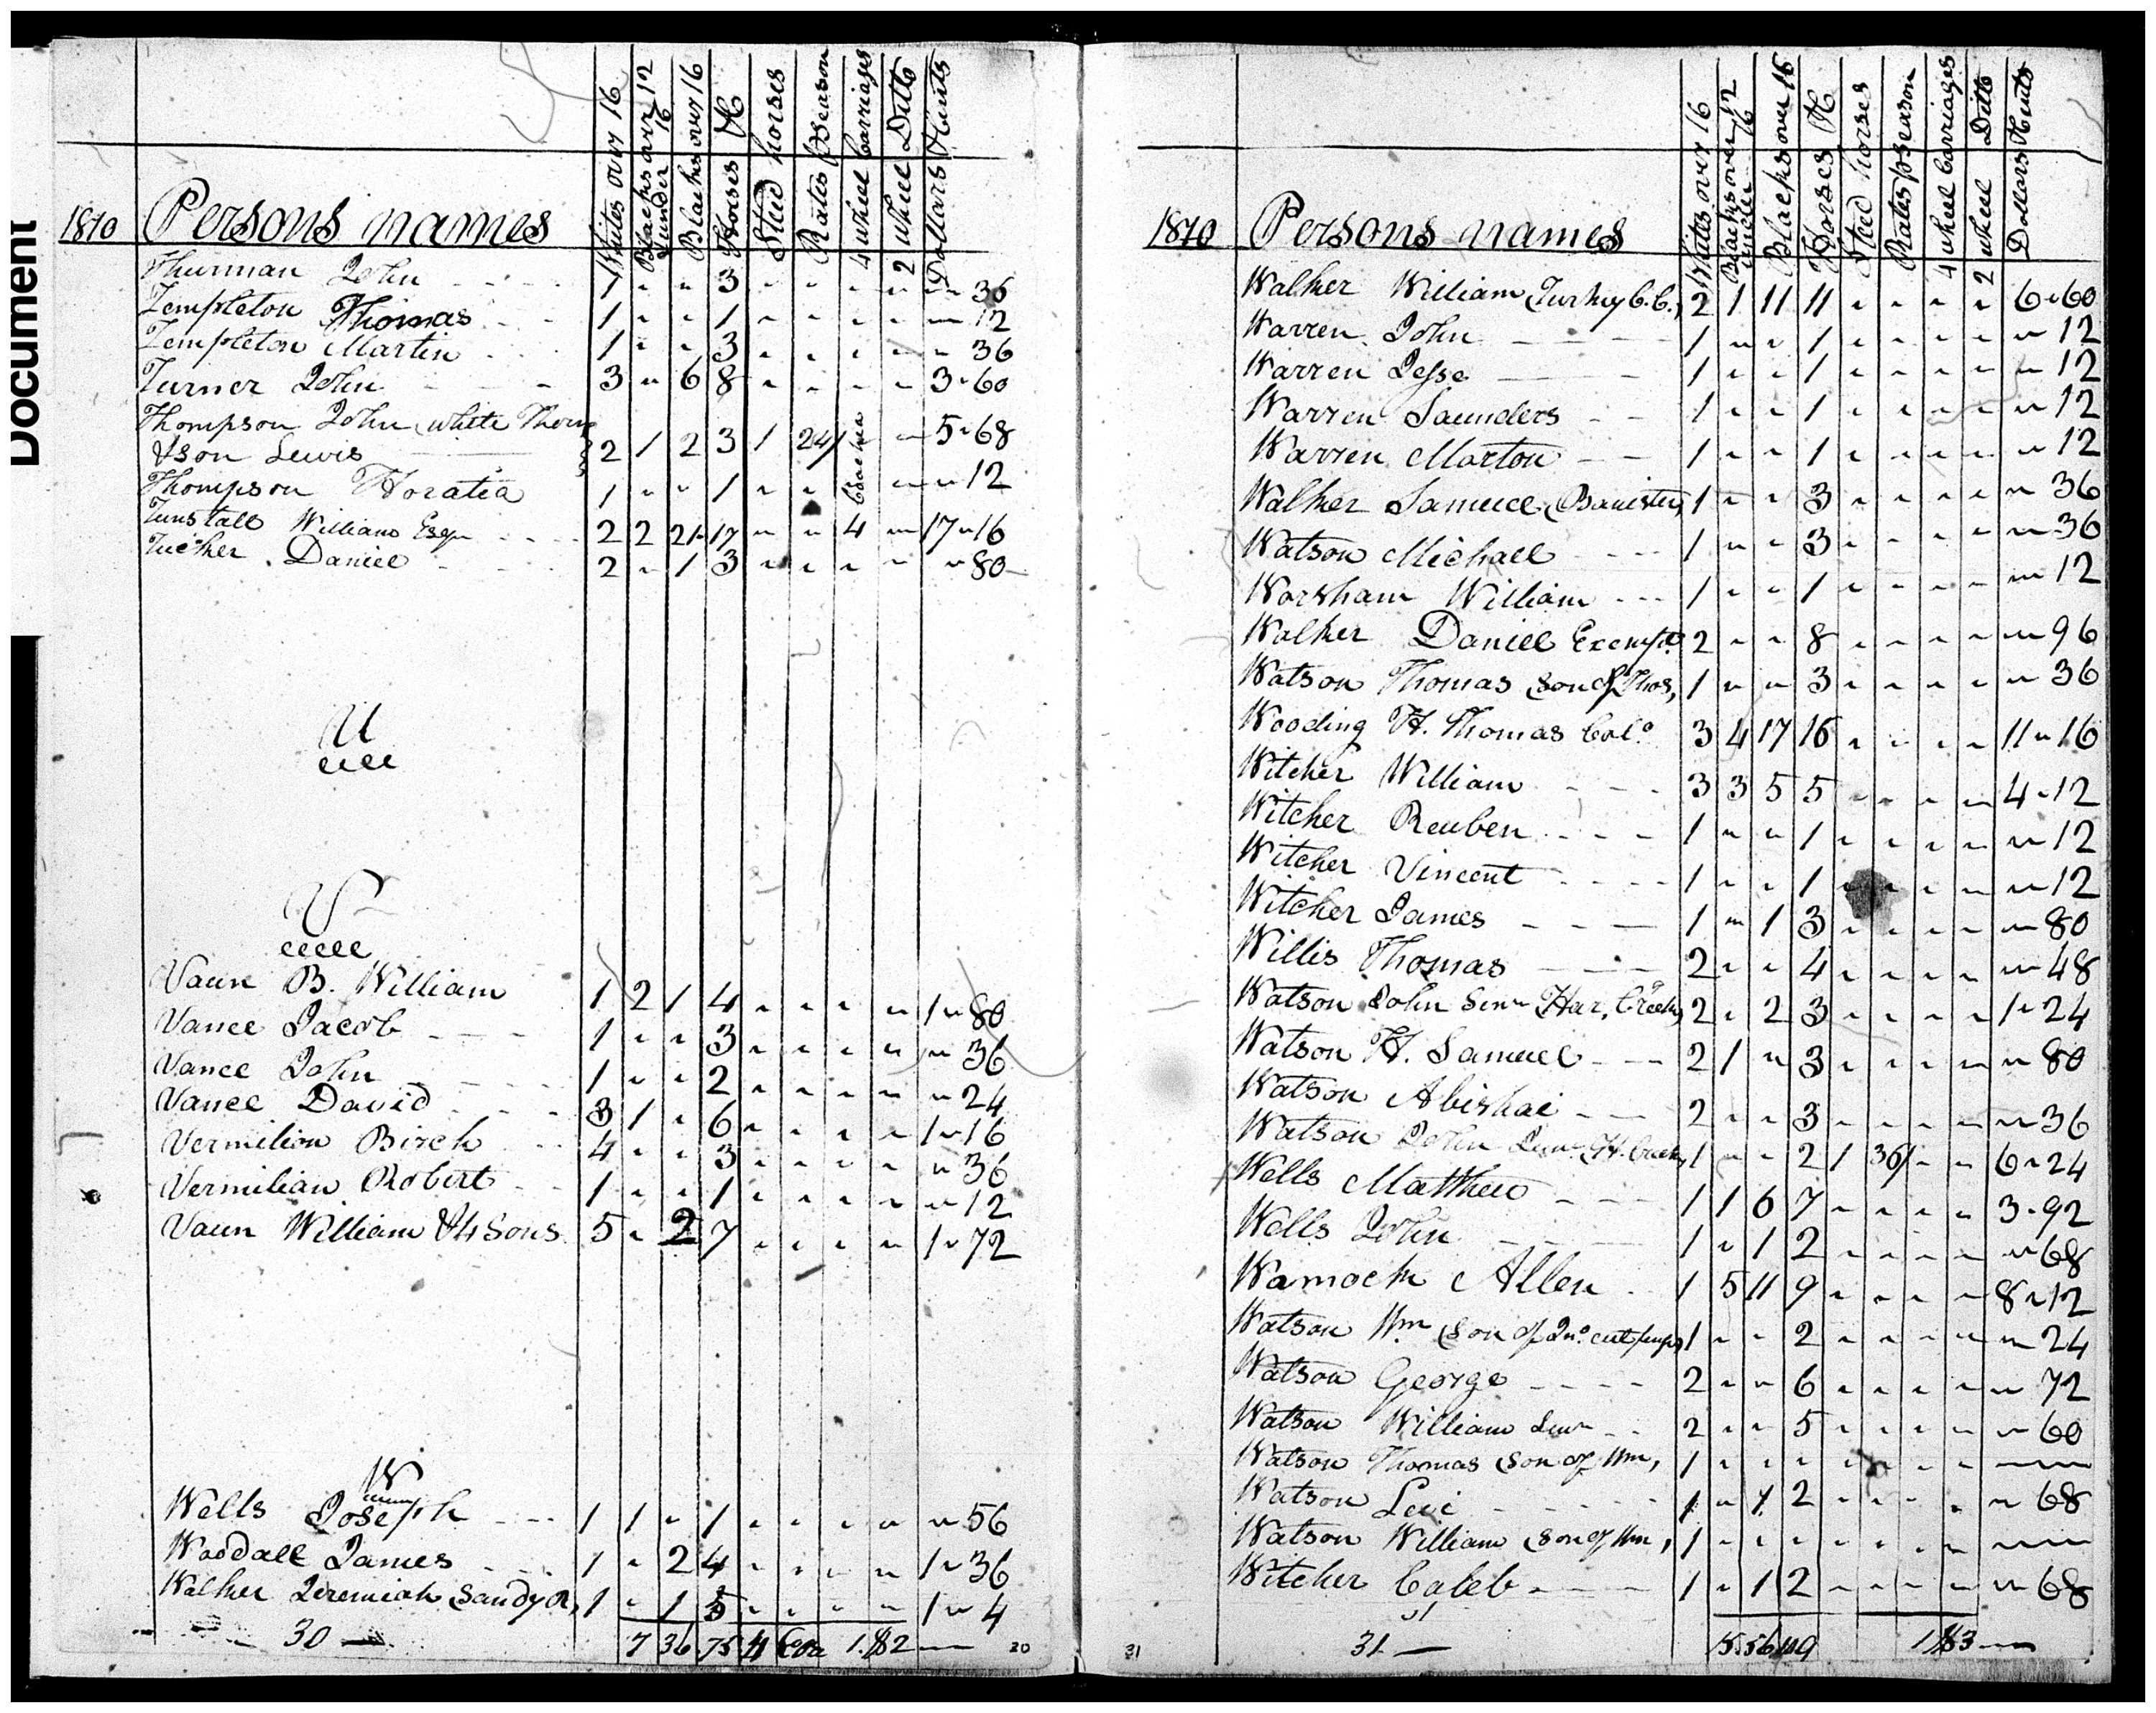 Document
Whites over 16
Blacks over 12 & under 16
Blacks over 16
Horses &c
Stud horses
Rates p Season
4 wheel Carriages
2 wheel Ditto
Dollars & Cents
1810 Persons names
Thurman John 1 " " 3 " " " " " 36
Templeton Thomas 1 " " 1 " " " " " 12
Templeton Martin 1 " " 3 " " " " " 36
Turner John 3 " 6 8 " " " " 3 " 60
Thompson John (white Thorn
& son Lewis 2 1 2 3 1 24/ " " 5 " 68
Thompson Horatia 1 " " 1 " " " " " 12
Tunstall William Esqr 2 2 21 17 " " Coachea 4 " 17 " 16
Tucker Daniel 2 " 1 3 " " " " " 80
U
V
Vaun B. William 1 2 1 4 " " " " 1 " 80
Vance Jacob 1 " " 3 " " " " " 36
Vance John 1 " " 2 " " " " " 24
Vance David 3 1 " 6 " " " " 1 " 16
Vermilion Birch 4 " " 3 " " " " " 36
Vermilian Robert 1 " " 1 " " " " " 12
Vaun William & 4 Sons 5 " 2 7 " " " " 1 " 72
W
Wells Joseph 1 1 " 1 " " " " " 56
Woodall James 1 " 2 4 " " " " 1 " 36
Walker Jeremiah (Sandy R) 1 " 1 5 " " " " 1 " 4
30 7 36 75 4 1.82
30
Whites over 16
Blacks over 12 under 16
Blacks over 16
Horses &c
Stud horses
Rates p season
4 wheel Carriages
2 wheel Ditto
Dollars & Cents
1810 Persons names
Walker William (Turkey C. C.) 2 1 11 11 " " " " 6 " 60
Warren John 1 " " 1 " " " " " 12
Warren Jesse 1 " " 1 " " " " " 12
Warren Saunders 1 " " 1 " " " " " 12
Warren Marton 1 " " 1 " " " " " 12
Walker Samuel (Banister) 1 " " 3 " " " " " 36
Watson Michael 1 " " 3 " " " " " 36
Worsham William 1 " " 1 " " " " " 12
Walker Daniel Exempt 2 " " 8 " " " " " 96
Watson Thomas son of Thos, 1 " " 3 " " " " " 36
Wooding H. Thomas Colo 3 4 17 16 " " " " 11 " 16
Witcher William 3 3 5 5 " " " " 4 " 12
Witcher Reuben 1 " " 1 " " " " " 12
Witcher Vincent 1 " " 1 " " " " " 12
Witcher James 1 " 1 3 " " " " " 80
Willis Thomas 2 " " 4 " " " " " 48
Watson John Senr (Har, Creek) 2 " 2 3 " " " " 1 " 24
Watson H. Samuel 2 1 " 3 " " " " " 80
Watson Abishai 2 " " 3 " " " " " 36
Watson John Junr (H. Creek) 1 " " 2 1 36/ " " 6 " 24
Wells Matthew 1 1 6 7 " " " " 3 " 92
Wells John 1 " 1 2 " " " " " 68
Wamock Allen 1 5 11 9 " " " " 8 " 12
Watson Wm (Son of Jno. 1 " " 2 " " " " " 24
Watson George 2 " " 6 " " " " " 72
Watson William Senr 2 " " 5 " " " " " 60
Watson Thomas (son of Wm, 1 " " " " " " " "
Watson Levi 1 " 1 2 " " " " " 68
Watson William (son of Wm, 1 " " " " " " " "
Witcher Caleb 1 " 1 2 " " " " " 68
31 15 56 119 1 83
31